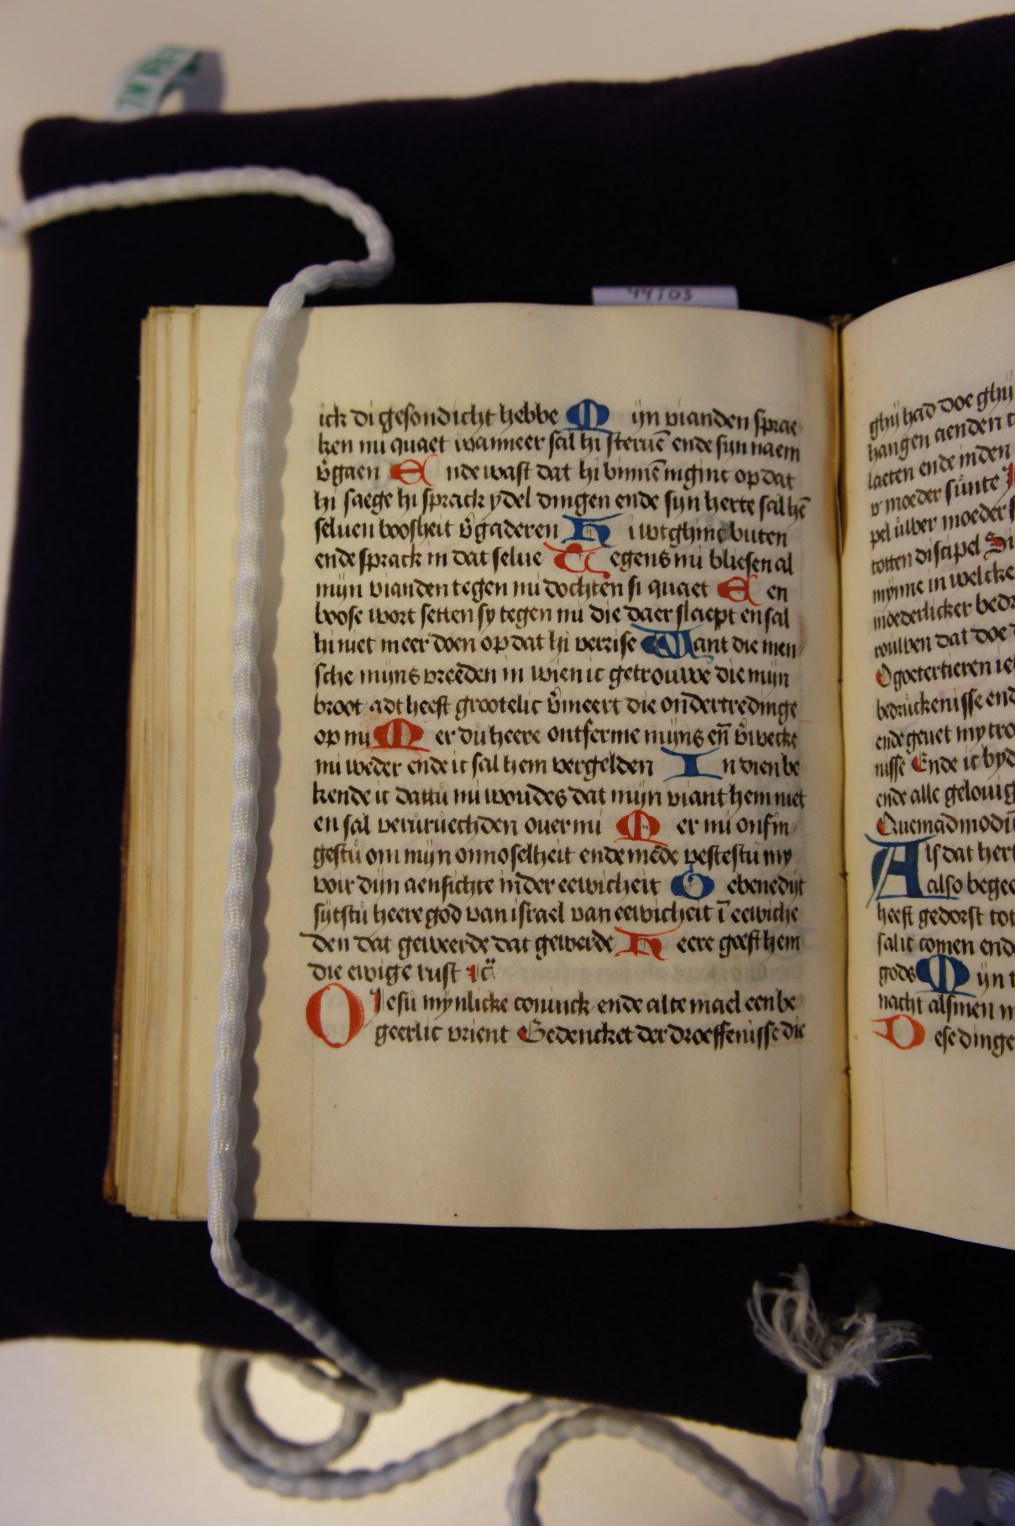 ick di gesondicht hebbe Mijn vianden sprae
ken mi quaet wanneer sal hi steruē ende sijn naem
v̄gaen Ende wast dat hi binnē in ginc op dat
hi saege hi sprack ydel dingen ende sijn herte sal hē
seluen boosheit v̄gaderen Hi wtghinc buten
ende sprack in dat selue Tegens mi bliesen al
mijn vianden tegen mi dochten si quaet Een
boose wort setten sy tegen mi die daer slaept en sal
hi niet meer doen op dat hi verrise Want die men
sche mijns vreēden in wien ic getrouwe die mijn
broot adt heeft grootelic v̄meert die ondertredinge
op mi Mer du heere ontferme mijns eñ v̄wecke
mi weder ende ic sal hem vergelden In dien be
kende ic dattu mi woudes dat mijn viant hem niet
en sal ouer mi Mer mi ontfin
gestu om mijn onnoselheit ende mede vestestu my
voir dijn aensichte in der eewicheit Gebenedijt
sijtstu heere god van israel van eewicheit ī eewiche
den dat gewerde dat gewerde Heere geeft hem
die ewige rust
O Jesu mynlicke ende altemael een be
geerlic vrient Gedencket der droeffenisse die
ghij had doe ghij
hangen aenden
laeten ende inden
v moeder
pel uwer moeder
totten discipel
mynne in welcke
moederlicker
wouwen dat doe
O goetertieren
bedruckenisse
ende geuet my
nisse Ende ic
ende alle gelouig
Quemadmodū
Als dat hert
also begee
heeft gedorst tot
sal ic comen ende
gods Mijn
nacht alsmen
Dese dinge
44/03